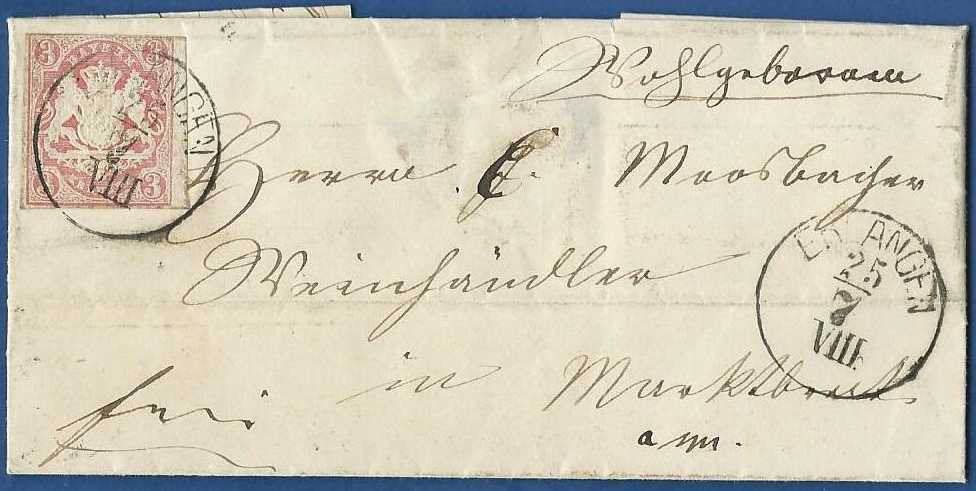 3 BAYERN 3
3
ANGEN
VIII
Wohlgeboren
Herrn E. Moosbacher
Weinhändler
frei in Marktbreit
a/m.
ERLANGEN
25
7
VIII.